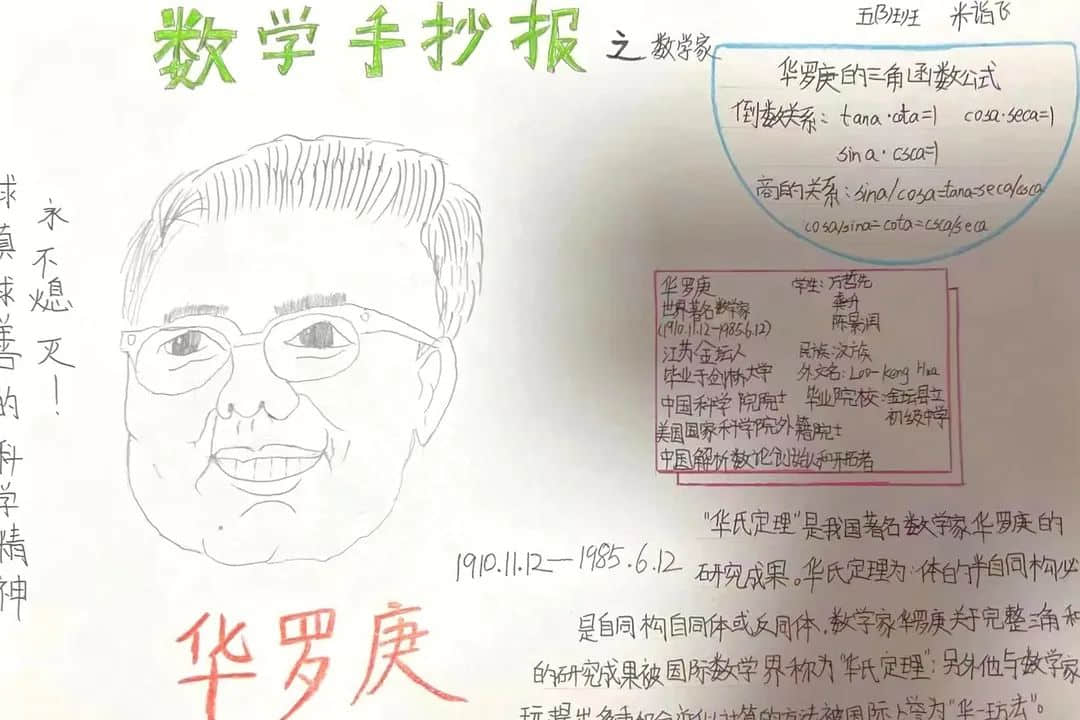 数学手抄报之数学家
五(3)班 米诣飞
华罗庚的三角函数公式
倒数关系: tana·cota=1 cosa·seca=1
sina·csca=1
商的关系:sina/cosa=tana=seca/csca
cosa/sina=cota=csca/seca
永不熄灭!
球真球善的科学精神
华罗庚 学生:万哲先
世界著名数学家 龚升
(1910.11.12—1985.6.12) 陈景润
江苏金坛人 民族:汉族
毕业于剑桥大学 外文名:Loo-Keng Hua
中国科学院院士 毕业院校:金坛县立
初级中学
美国国家科学院外籍院士
中国解析数论创始人和开拓者
1910.11.12—1985.6.12
华罗庚
"华氏定理"是我国著名数学家华罗庚的
研究成果。华氏定理为:体的半自同构必
是自同构自同体或反同体。数学家华罗庚关于完整三角和
的研究成果被国际数学界称为"华氏定理";另外他与数学家
提出多重积分近似计算的方法被国际上誉为"华—王方法"。